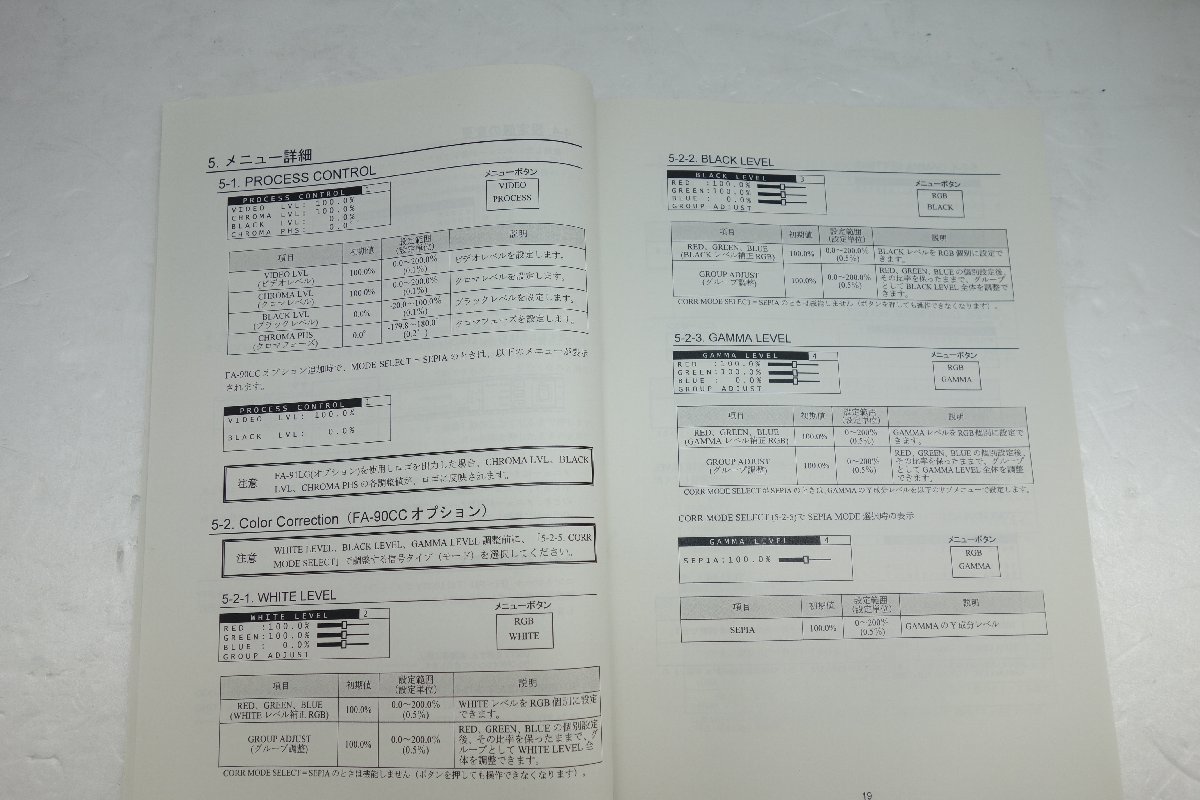 5. メニュー詳細
5-1. PROCESS CONTROL
PROCESS CONTROL 1
VIDEO LVL: 100.0%
CHROMA LVL: 100.0%
BLACK LVL: 0.0%
CHROMA PHS: 0.0°
メニューボタン
VIDEO
PROCESS
項目 初期値 設定範囲 説明
(設定単位)
VIDEO LVL
(ビデオレベル) 100.0% 0.0～200.0%
(0.1%) ビデオレベルを設定します。
CHROMA LVL
(クロマレベル) 100.0% 0.0～200.0%
(0.1%) クロマレベルを設定します。
BLACK LVL
(ブラックレベル) 0.0% -20.0～100.0%
(0.1%) ブラックレベルを設定します。
CHROMA PHS
(クロマフェーズ) 0.0° -179.8～180.0
(0.2°) クロマフェーズを設定します。
FA-90CC オプション追加時で、MODE SELECT = SEPIA のときは、以下のメニューが表示
されます。
PROCESS CONTROL 1
VIDEO LVL: 100.0%
BLACK LVL: 0.0%
注意
FA-91LG(オプション)を使用しロゴを出力した場合、CHROMA LVL、BLACK
LVL、CHROMA PHS の各調整値が、ロゴに反映されます。
5-2. Color Correction（FA-90CC オプション）
注意
WHITE LEVEL、BLACK LEVEL、GAMMA LEVEL 調整前に、「5-2-5. CORR
MODE SELECT」で調整する信号タイプ（モード）を選択してください。
5-2-1. WHITE LEVEL
WHITE LEVEL 2
RED :100.0%
GREEN:100.0%
BLUE : 0.0%
GROUP ADJUST
メニューボタン
RGB
WHITE
項目 初期値 設定範囲 説明
(設定単位)
RED、GREEN、BLUE
(WHITE レベル補正 RGB) 100.0% 0.0～200.0%
(0.5%) WHITE レベルを RGB 個別に設定
できます。
GROUP ADJUST
(グループ調整) 100.0% 0.0～200.0%
(0.5%) RED、GREEN、BLUE の個別設定
後、その比率を保ったままで、グ
ループとして WHITE LEVEL 全
体を調整できます。
CORR MODE SELECT = SEPIA のときは機能しません（ボタンを押しても操作できなくなります）。
5-2-2. BLACK LEVEL
BLACK LEVEL 3
RED :100.0%
GREEN:100.0%
BLUE : 0.0%
GROUP ADJUST
メニューボタン
RGB
BLACK
項目 初期値 設定範囲 説明
(設定単位)
RED、GREEN、BLUE
(BLACK レベル補正 RGB) 100.0% 0.0～200.0%
(0.5%) BLACK レベルを RGB 個別に設定で
きます。
GROUP ADJUST
(グループ調整) 100.0% 0.0～200.0%
(0.5%) RED、GREEN、BLUE の個別設定後、
その比率を保ったままで、グループ
として BLACK LEVEL 全体を調整で
きます。
CORR MODE SELECT = SEPIA のときは機能しません（ボタンを押しても操作できなくなります）。
5-2-3. GAMMA LEVEL
GAMMA LEVEL 4
RED :100.0%
GREEN:100.0%
BLUE : 0.0%
GROUP ADJUST
メニューボタン
RGB
GAMMA
項目 初期値 設定範囲 説明
(設定単位)
RED、GREEN、BLUE
(GAMMA レベル補正 RGB) 100.0% 0～200%
(0.5%) GAMMA レベルを RGB 個別に設定で
きます。
GROUP ADJUST
(グループ調整) 100.0% 0～200%
(0.5%) RED、GREEN、BLUE の個別設定後、
その比率を保ったままで、グループ
として GAMMA LEVEL 全体を調整
できます。
CORR MODE SELECT が SEPIA のときは、GAMMA の Y 成分レベルを以下のサブメニューで設定します。
CORR MODE SELECT (5-2-5)で SEPIA MODE 選択時の表示
GAMMA LEVEL 4
SEPIA:100.0%
メニューボタン
RGB
GAMMA
項目 初期値 設定範囲 説明
(設定単位)
SEPIA 100.0% 0～200%
(0.5%) GAMMA の Y 成分レベル
19